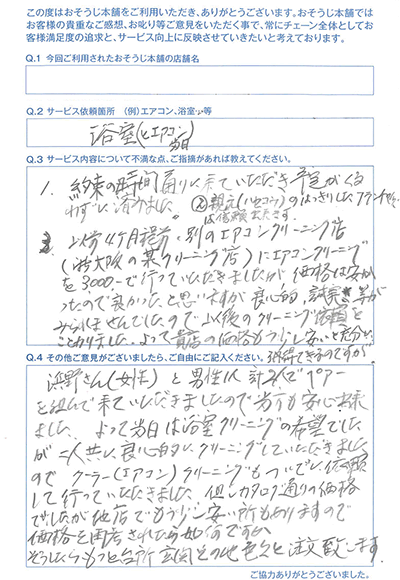 この度はおそうじ本舗をご利用いただき、ありがとうございます。おそうじ本舗では
お客様の貴重なご感想、お叱り等ご意見をいただく事で、常にチェーン全体としてお
客様満足度の追求と、サービス向上に反映させていきたいと考えております。
Q.1 今回ご利用されたおそうじ本舗の店舗名
Q.2 サービス依頼箇所 (例)エアコン、浴室、等
浴室(とエアコン)
Q.3 サービス内容について不満な点、ご指摘があれば教えてください。
1. 約束の時間通りに来ていただき予定がくる
わずに済みました。
② 親元 のはっきりした
は信頼出来ます。
以前4ヶ月程前、別のエアコンクリーニング店
(新大阪の某クリーニング店)にエアコンクリーニング
を3,000-で行っていただきましたが価格は安か
ったので良かったと思いますが良心的、誠実さ等が
みられませんでしたので以後のクリーニング依頼を
ことわりました。よって貴店の価格もう少し安いと充分
Q.4 その他ご意見がございましたら、ご自由にご記入ください。 納得できるのですが
浜野さん(女性)と男性1人計2人でペアー
を組んで来ていただきましたので当方も安心出来
ました。よって当日は浴室クリーニングの希望でした
が二人共に良心的にクリーニングしていただきました
のでクーラー(エアコン)クリーニングもついでに依頼
して行っていただきました。但しカタログ通りの価格
でしたが他店でもう少し安い所もありますので
価格を再考されたら如何ですか
そうしたらもっと台所玄関その他色々と注文致します。
ご協力ありがとうございました。